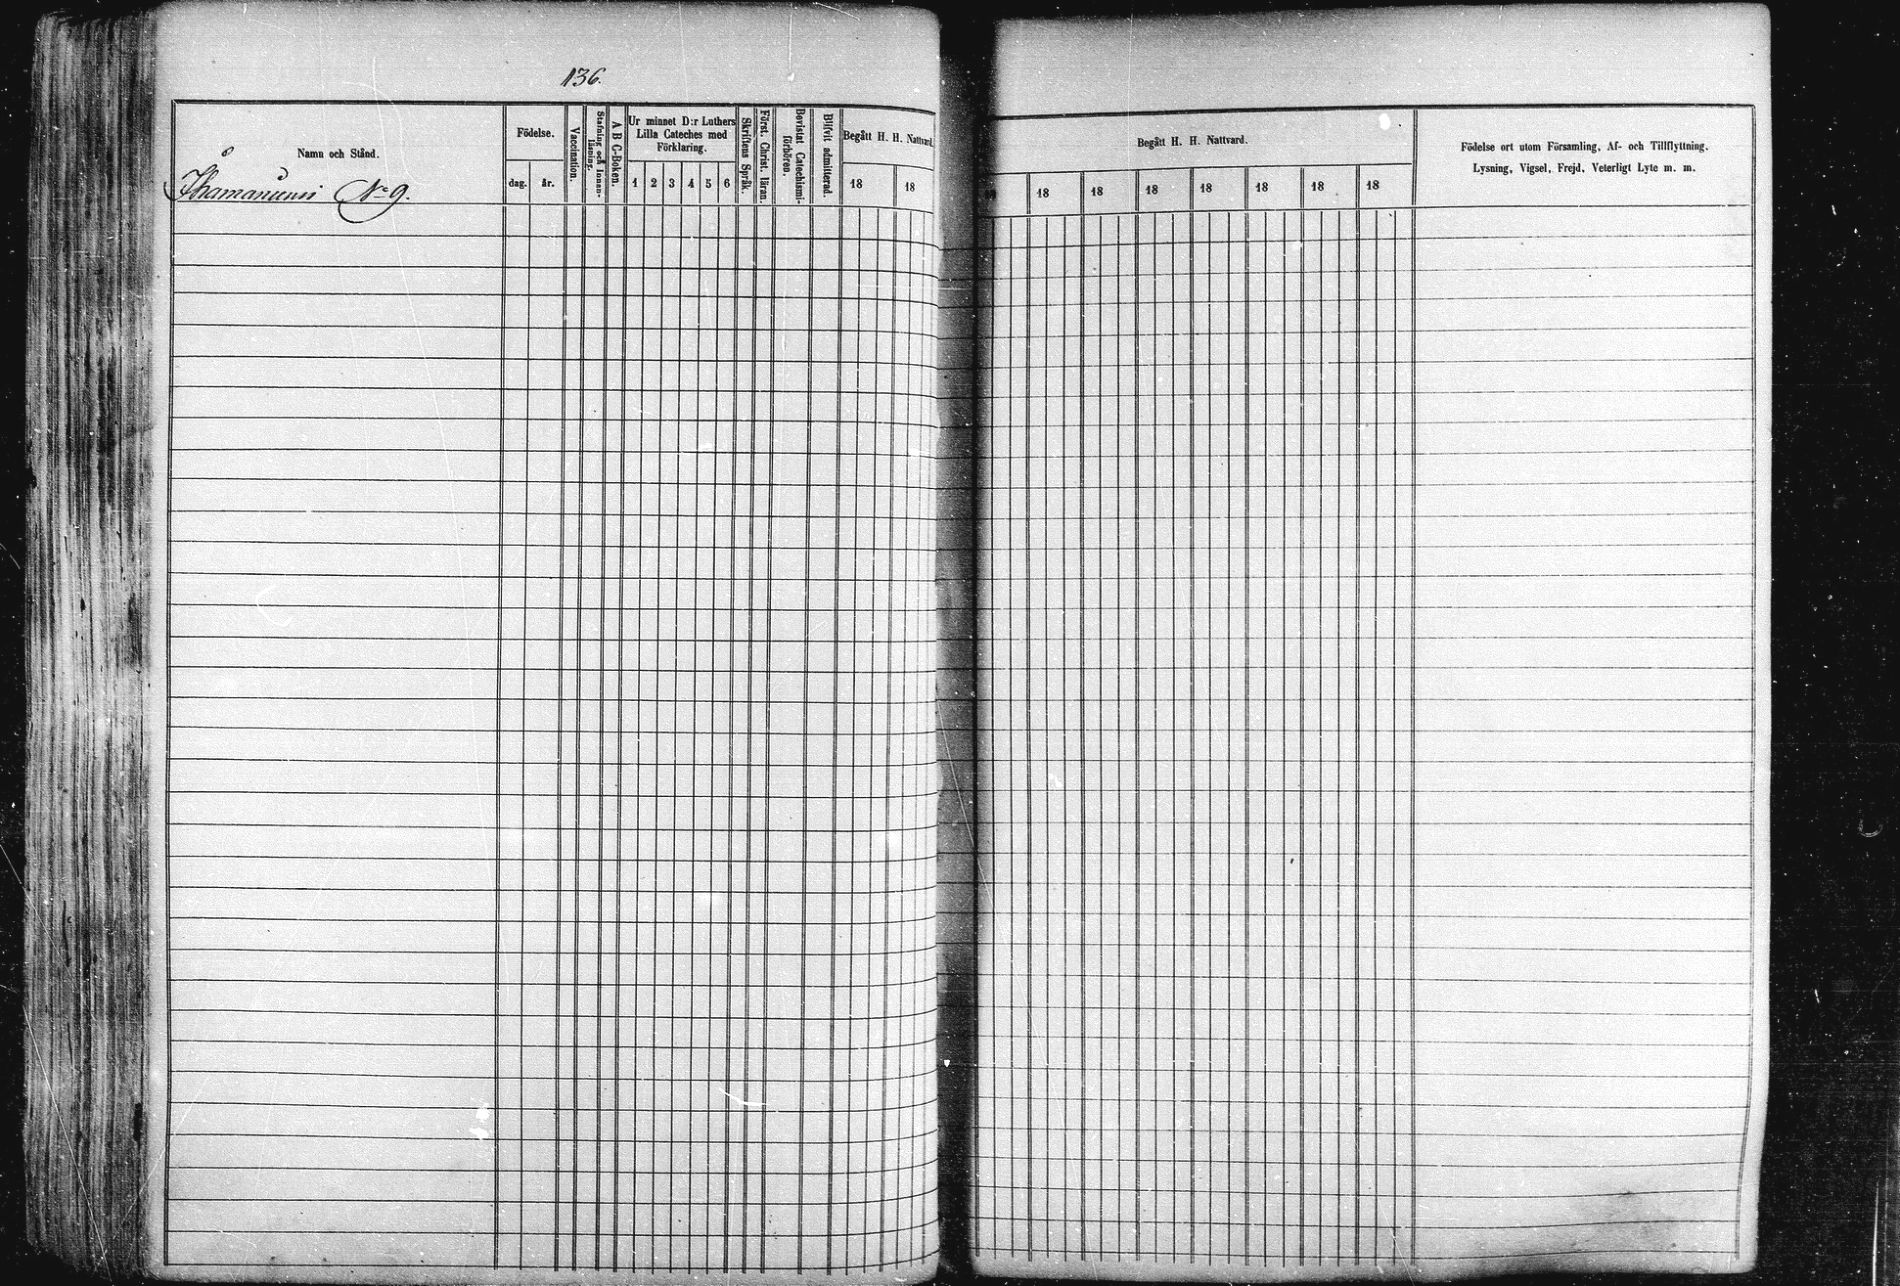 136.
Namn och Stånd.
Födelse.
dag.
år.
Vaccination.
Stafning och Innan-
läsning.
A B C-Boken.
Ur minnet D:r Luthers
Lilla Cateches med
Förklaring.
1 2 3 4 5 6
Skriftens Språk.
Först. Christ. läran.
Bevistat Catechismi-
förhören.
Blifvit admitterad.
Begått H. H. Nattvard.
18 18
Begått H. H. Nattvard.
18 18 18 18 18 18 18
Födelse ort utom Församling, Af- och Tillflyttning.
Lysning, Vigsel, Frejd, Veterligt Lyte m. m.
No 9.